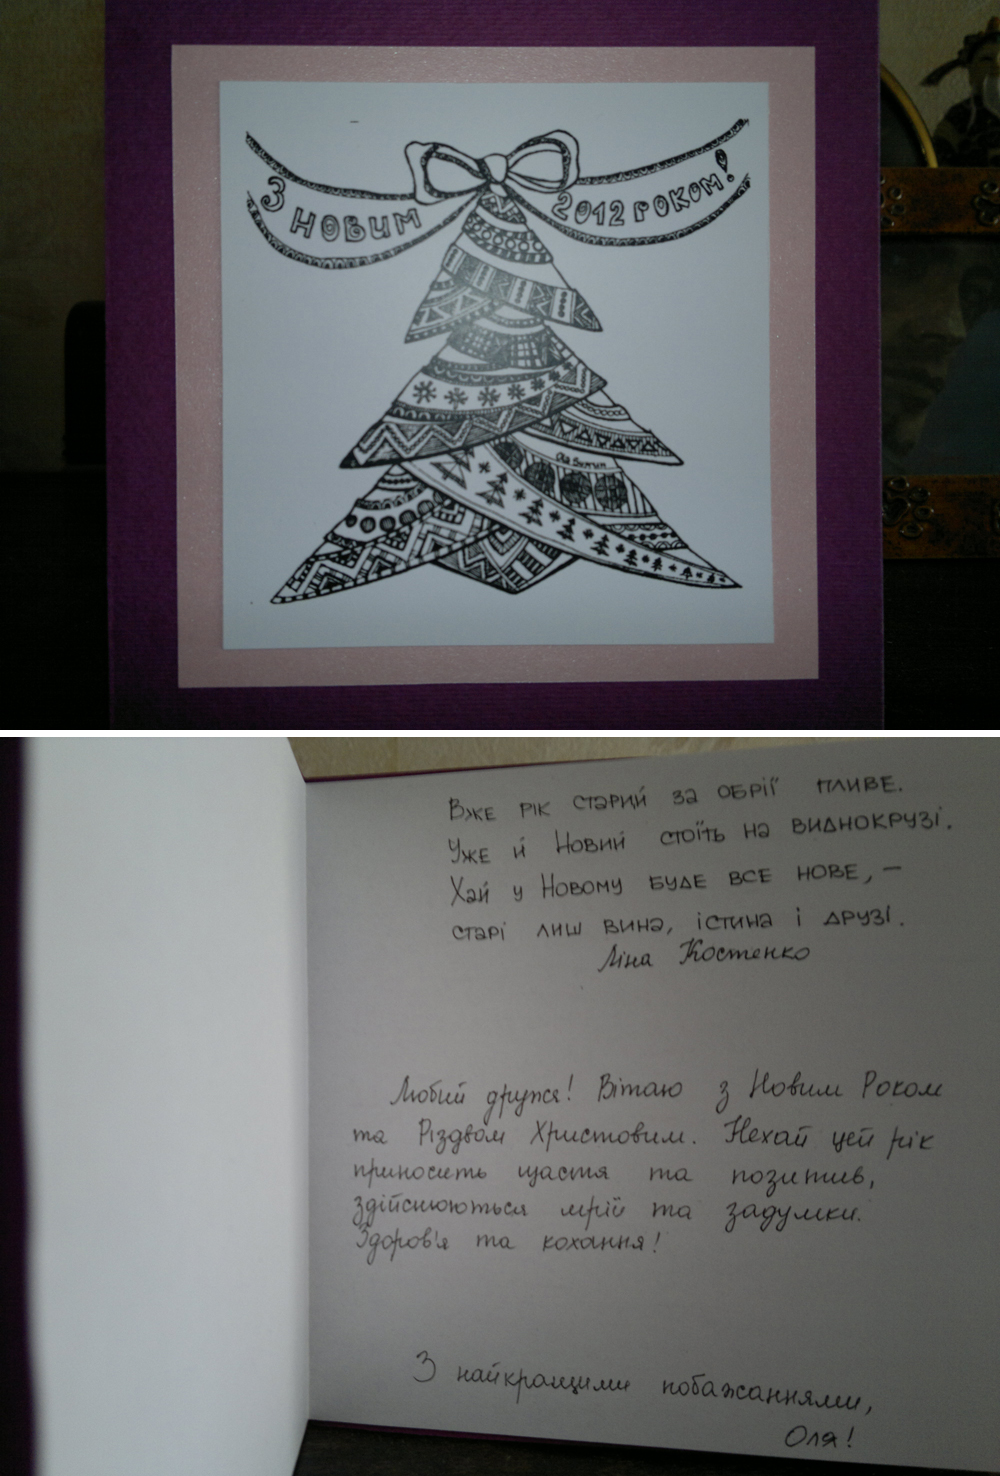 З НОВИМ 2012 РОКОМ!
Вже рік старий за обрії пливе.
Уже й Новий стоїть на виднокрузі.
Хай у Новому буде все нове, –
старі лиш вина, істина і друзі.
Ліна Костенко
Любий друже! Вітаю з Новим Роком
та Різдвом Христовим. Нехай цей рік
приносить щастя та позитив,
здійснюються мрії та задумки.
Здоров'я та кохання!
З найкращими побажаннями,
Оля!